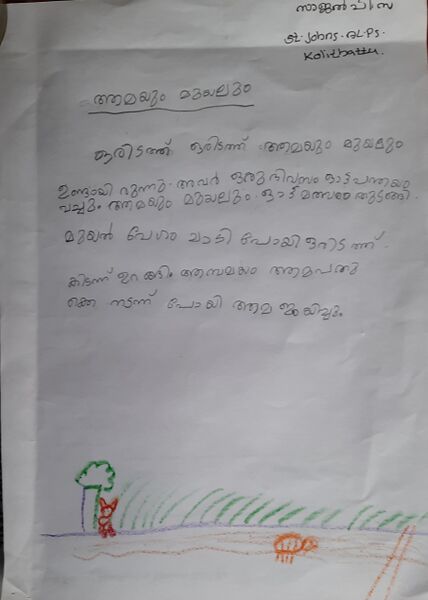 സാജൽ പി സ
St. Johns. A.L.P.S.
Kolithattu.
ആമയും മുയലും
ഒരിടത്ത് ഒരിടത്ത് ആമയും മുയലും
ഉണ്ടായി രുന്നു. അവർ ഒരു ദിവസം ഓട്ടപന്തയം
വച്ചു. ആമയും മുയലും ഓട്ടമത്സരം തുടങ്ങി.
മുയൽ വേഗം ചാടി പോയി ഒരിടത്ത്.
കിടന്ന് ഉറങ്ങി. ആസമയം ആമപതു
ക്കെ നടന്ന് പോയി ആമ ജയിച്ചു.